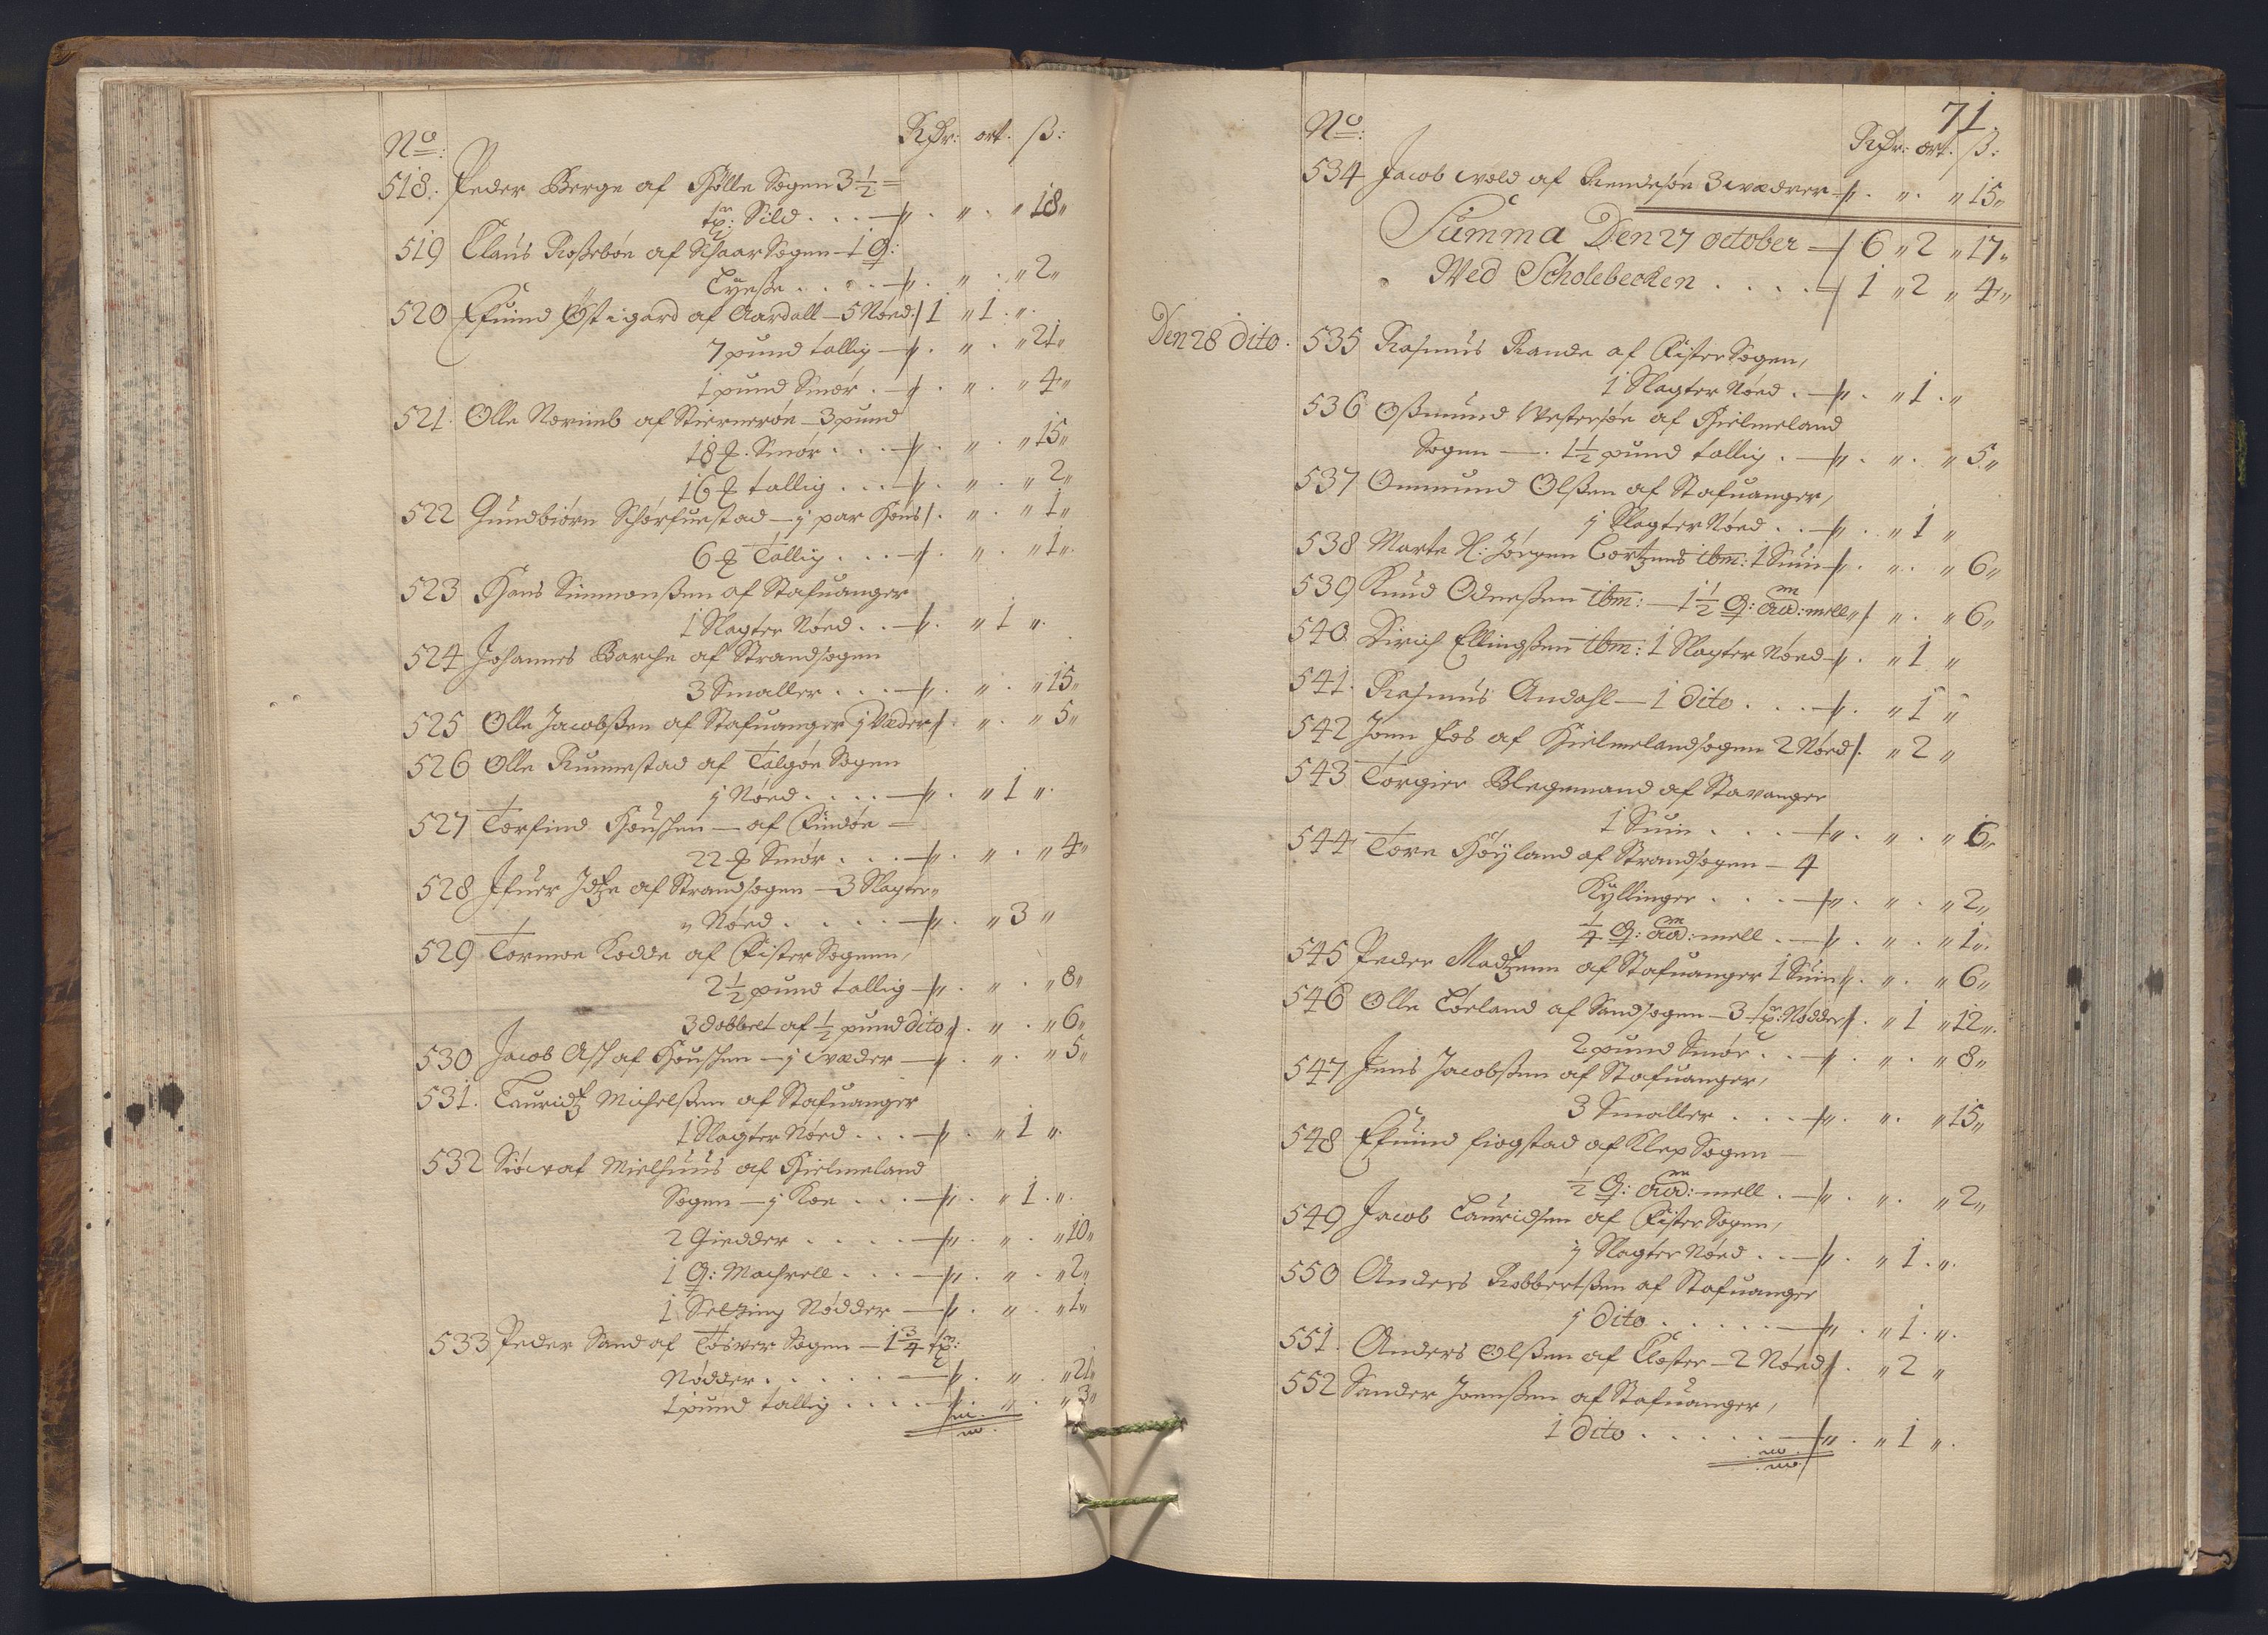 No: Rdr: ort. ß:
518. Peder Berge af Hølle Sogen 3½ =
tr: Sild . . . — „ . „ . „ 18 „
519 Claus Roßebøe af Schaar Sogen — 1 Q:
Tyeße . . . . — „ . „ . „ 2 „
520 Efuind Øst i gard af Aardall — 5 Nøed 1 „ 1 . „
7 pund tallig — „ . „ . „ 21 „
1 pund Smør . — „ . „ . „ 4 „
521. Olle Norimb af Stiernerøe — 3 pund
18 ℔. Smør . . . — „ . „ . „ 15 „
16 ℔ tallig . . . — „ . „ . „ 2 „
522 Gundbiørn Schorfuestad — j par Høns . „ . „ 1 „
6 ℔ Tallig . . . — „ . „ . „ 1 „
523 Hans Simmonßen af Stafuanger
1 Slagter Nøed . . — „ . „ 1 „
524 Johannes Barche af Strandsogen
3 Smaller . . . — „ . „ . „ 15 „
525 Olle Jacobßen af Stafuanger j Væder . „ . „ 5 „
526 Olle Runnestad af Talgøe Sogen
j Nøed . . . . — „ . „ 1 „
527 Torfind Houschen — af Findøe =
22 ℔ Smør . . . — „ . „ . „ 4 „
528 Ifuer Idtze af Strandsogen — 3 Slagter „
„ Nøed . . . . — „ . „ 3 „
529 Tormoe Kodde af Fister Sogenn,
2½ pund tallig — „ . „ . „ 8 „
3 dobbelt af ½ pund dito „ . „ . „ 6 „
530 Jacob Ask af Houschen — j Væder — „ . „ . „ 5 „
531. Lauridtz Michelßen af Stafuanger
1 Slagter Nøed . . . — „ . „ 1 „
532 Siøwaf Mielhuus af Hielmeland
Sogen — j Koe . . . — „ . „ 1 . „
2 Giedder . . . . — „ . „ . „ 10 „
1 Q: Machrell . . . — „ . „ . „ 2 „
1 Setting Nødder — „ . „ . „ 1 „
533 Peder Sand af Tøsver Sogen — 1¾ tr:
Nødder . . . . . — „ . „ . „ 21 „
1 pund tallig . . . . — „ . „ . „ 3 „
71.
No: Rdr: ort. ß:
534 Jacob Vold af Rendesøe 3 Vædrer — „ . „ . „ 15 „
Summa Den 27 october — 6 „ 2 „ 17 „
Wed Scholebecken . . . . — 1 „ 2 „ 4 „
Den 28 dito. 535 Rasmus Rande af Fister Sogen,
1 Slagter Nøed . — „ . „ 1 . „
536 Oßmund Vestersøe af Hielmeland
Sogen — . 1½ pund tallig . — „ . „ . „ 5 „
537 Ommund Olßen af Stafuanger,
j Slagter Nøed . . — „ . „ 1 „
538 Marte Sl: Jørgen Cortzens ibm: 1 Suin — „ . „ . „ 6 „
539 Knud Odneßen ibm: — 1½ Q: mell „ . „ . „ 6 „
540 Dirich Ellingßen ibm: 1 Slagter Nøed — „ . „ 1 „
541. Rasmus Andahl — 1 dito . . . — „ . „ 1 „
542 Jonn Fos af Hielmelandsogen 2 Nøed . „ 2 „
543 Torgier Blegemand af Stavanger
1 Suin . . . — „ . „ . „ 6 „
544 Tore Høyland af Strandsogen — 4
Kyllinger . . . — „ . „ . „ 2 „
¼ Q: mell . — „ . „ . „ 1 „
545 Peder Madtzenn af Stafuanger 1 Suin „ . „ . „ 6 „
546 Olle Tøeland af Sandsogen — 3 tr: Nødder . „ 1 „ 12 „
2 pund Smør . . — „ . „ . „ 8 „
547 Jens Jacobßen af Stafuanger,
3 Smaller . . . — „ . „ . „ 15 „
548 Efuind Fiogstad af Klep Sogen —
½ Q: mell . — „ . „ . „ 2 „
549 Jacob Lauridsen af Fister Sogen,
j Slagter Nøed . . — „ . „ 1 . „
550 Anders Robbertßen af Stafuanger
j dito . . . . . — „ . „ 1 . „
551. Anders Olßen af Closter — 2 Nøed . „ 2 „
552 Sander Joenßen af Stafuanger,
1 dito . . . . . — „ . „ 1 „